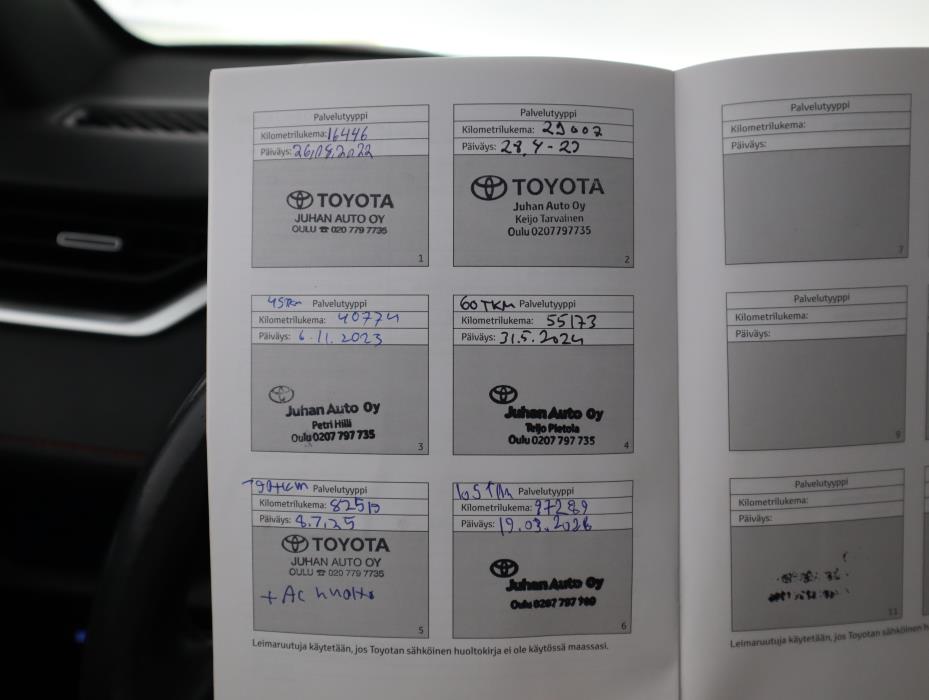 Palvelutyyppi
Kilometrilukema: 16446
Päiväys:
TOYOTA
JUHAN AUTO OY
OULU ☎ 020 779 7735
1
Palvelutyyppi
Kilometrilukema: 29007
Päiväys: 28.4-23
TOYOTA
Juhan Auto Oy
Keijo Tarvainen
Oulu 0207797735
2
45TKM Palvelutyyppi
Kilometrilukema: 40774
Päiväys: 6.11.2023
Juhan Auto Oy
Petri Hilli
Oulu 0207 797 735
3
60TKM Palvelutyyppi
Kilometrilukema: 55173
Päiväys: 31.5.2024
Juhan Auto Oy
Teijo Pietola
Oulu 0207 797 735
4
90TKM Palvelutyyppi
Kilometrilukema:
Päiväys: 8.7.25
TOYOTA
JUHAN AUTO OY
OULU ☎ 020 779 7735
+ AC huolto
5
105TKM Palvelutyyppi
Kilometrilukema: 97289
Päiväys: 19.03.2026
Juhan Auto Oy
Oulu 0207 797
6
Leimaruutuja käytetään, jos Toyotan sähköinen huoltokirja ei ole käytössä maassasi.
Palvelutyyppi
Kilometrilukema:
Päiväys:
7
Palvelutyyppi
Kilometrilukema:
Päiväys:
9
Palvelutyyppi
Kilometrilukema:
Päiväys:
11
Leimaruutuja käytetään, jos Toyotan sähköinen